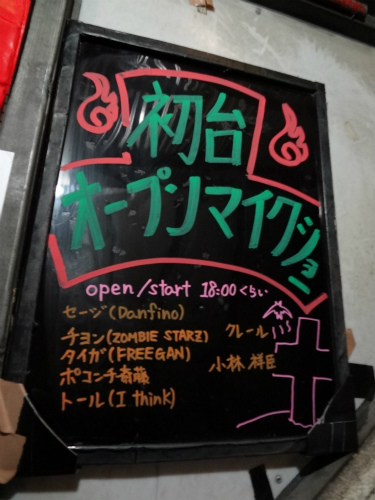 初台
オープンマイクショー
open/start 18:00くらい
セージ(Danfino)
チヨン(ZOMBIE STARZ)
クレール
タイガ(FREEGAN)
小林 祥臣
ポコンチ斎藤
トール(I think)